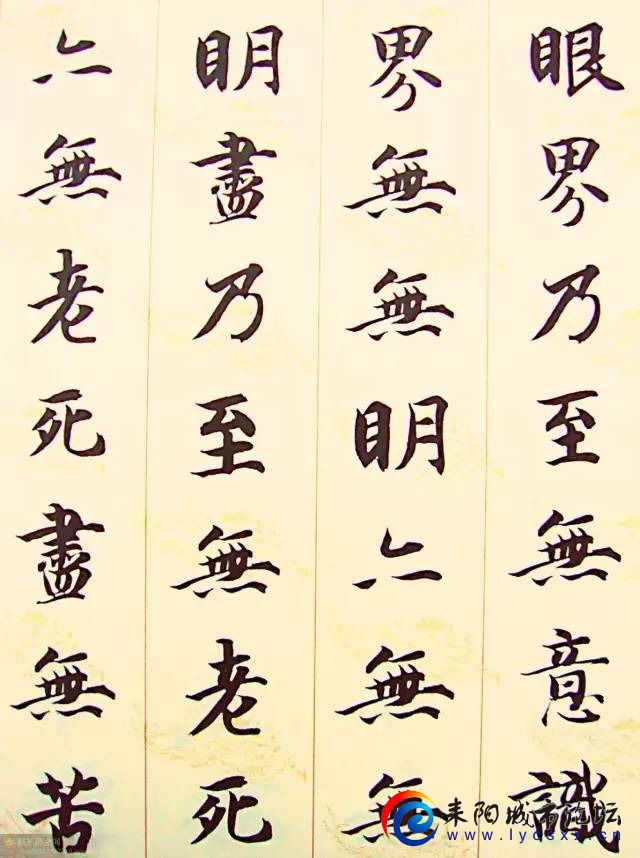 眼界乃至無意識
界無無明亦無無
明盡乃至無老死
亦無老死盡無苦
耒阳城市论坛